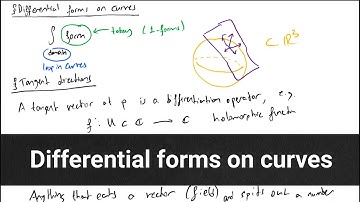 §Differential forms on curves
∫ form → today (1-forms)
domain
loop in curves
⊂ ℝ³
§Tangent directions
A tangent vector at p is a differentiation operator, e.g.
f: U ⊂ ℂ → ℂ holomorphic functn
Differential forms on curves
Anything that eats a vector (field) and spits out a number